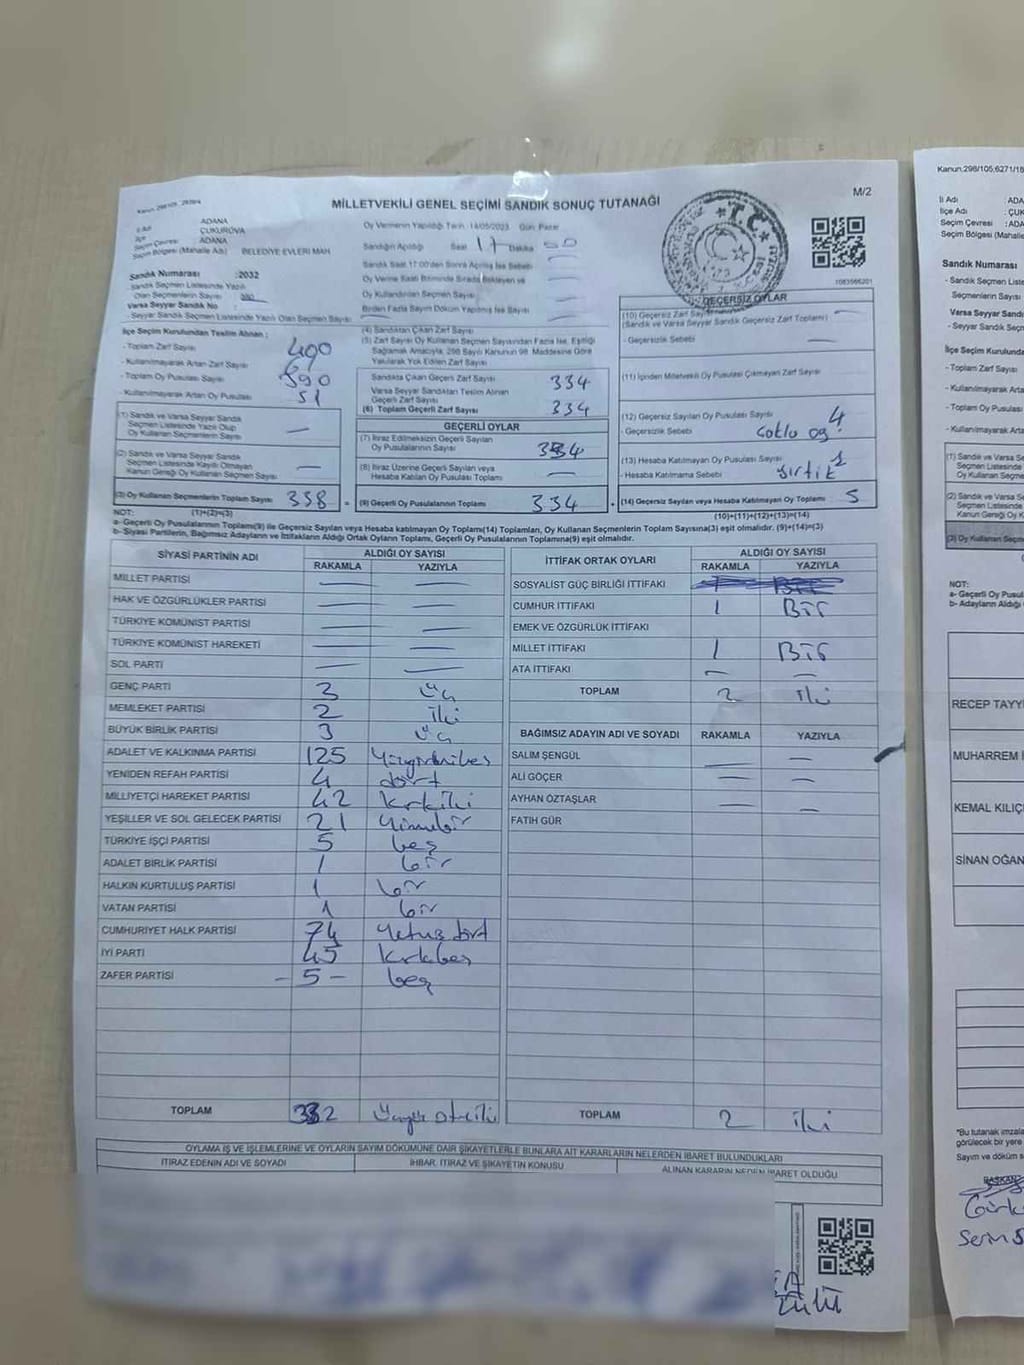 Kanun,298/105
M/2
MİLLETVEKİLİ GENEL SEÇİMİ SANDIK SONUÇ TUTANAĞI
İl Adı ADANA
İlçe ÇUKUROVA
Seçim Çevresi ADANA
Seçim Bölgesi (Mahalle Adı) BELEDİYE EVLERİ MAH
Sandık Numarası :2032
Sandık Seçmen Listesinde Yazılı
Olan Seçmenlerin Sayısı
Varsa Seyyar Sandık No
- Seyyar Sandık Seçmen Listesinde Yazılı Olan Seçmen Sayısı
İlçe Seçim Kurulundan Teslim Alınan ;
- Toplam Zarf Sayısı 490
- Kullanılmayarak Artan Zarf Sayısı
- Toplam Oy Pusulası Sayısı
- Kullanılmayarak Artan Oy Pusulası 51
(1) Sandık ve Varsa Seyyar Sandık
Seçmen Listesinde Yazılı Olup
Oy Kullanan Seçmenlerin Sayısı
(2) Sandık ve Varsa Seyyar Sandık
Seçmen Listesinde Kayıtlı Olmayan
Kanun Gereği Oy Kullanan Seçmen Sayısı
(3) Oy Kullanan Seçmenlerin Toplam Sayısı 338
Oy Vermenin Yapıldığı Tarih: 14/05/2023, Gün: Pazar
Sandığın Açıldığı Saat 17 Dakika 50
Sandık Saat 17:00'den Sonra Açılmış İse Sebebi
Oy Verme Saati Bitiminde Sırada Bekleyen ve
Oy Kullandırılan Seçmen Sayısı
Birden Fazla Sayım Döküm Yapılmış İse Sayısı
(4) Sandıktan Çıkan Zarf Sayısı
(5) Zarf Sayısı Oy Kullanan Seçmen Sayısından Fazla İse, Eşitliği
Sağlamak Amacıyla, 298 Sayılı Kanunun 98. Maddesine Göre
Yakılarak Yok Edilen Zarf Sayısı
Sandıkta Çıkan Geçerli Zarf Sayısı 334
Varsa Seyyar Sandıktan Teslim Alınan
Geçerli Zarf Sayısı
(6) Toplam Geçerli Zarf Sayısı 334
GEÇERLİ OYLAR
(7) İtiraz Edilmeksizin Geçerli Sayılan
Oy Pusulalarının Sayısı 334
(8) İtiraz Üzerine Geçerli Sayılan veya
Hesaba Katılan Oy Pusulası Toplamı
(9) Geçerli Oy Pusulalarının Toplamı 334
1083566201
GEÇERSİZ OYLAR
(10) Geçersiz Zarf Sayısı
(Sandık ve Varsa Seyyar Sandık Geçersiz Zarf Toplamı)
- Geçersizlik Sebebi
(11) İçinden Milletvekili Oy Pusulası Çıkmayan Zarf Sayısı
(12) Geçersiz Sayılan Oy Pusulası Sayısı 4
- Geçersizlik Sebebi
(13) Hesaba Katılmayan Oy Pusulası Sayısı 1
- Hesaba Katılmama Sebebi yırtık
(14) Geçersiz Sayılan veya Hesaba Katılmayan Oy Toplamı 5
NOT: (1)+(2)=(3) (10)+(11)+(12)+(13)=(14)
a- Geçerli Oy Pusulalarının Toplamı(9) ile Geçersiz Sayılan veya Hesaba katılmayan Oy Toplamı(14) Toplamları, Oy Kullanan Seçmenlerin Toplam Sayısına(3) eşit olmalıdır. (9)+(14)=(3)
b- Siyasi Partilerin, Bağımsız Adayların ve İttifakların Aldığı Ortak Oyların Toplamı, Geçerli Oy Pusulalarının Toplamına(9) eşit olmalıdır.
SİYASİ PARTİNİN ADI ALDIĞI OY SAYISI
RAKAMLA YAZIYLA
MİLLET PARTİSİ
HAK VE ÖZGÜRLÜKLER PARTİSİ
TÜRKİYE KOMÜNİST PARTİSİ
TÜRKİYE KOMÜNİST HAREKETİ
SOL PARTİ
GENÇ PARTİ 3 üç
MEMLEKET PARTİSİ 2 iki
BÜYÜK BİRLİK PARTİSİ 3 üç
ADALET VE KALKINMA PARTİSİ 125 yüzyirmibeş
YENİDEN REFAH PARTİSİ 4 dört
MİLLİYETÇİ HAREKET PARTİSİ 42 kırkiki
YEŞİLLER VE SOL GELECEK PARTİSİ 21 yirmibir
TÜRKİYE İŞÇİ PARTİSİ 5 beş
ADALET BİRLİK PARTİSİ 1 bir
HALKIN KURTULUŞ PARTİSİ 1 bir
VATAN PARTİSİ 1 bir
CUMHURİYET HALK PARTİSİ 74
İYİ PARTİ 45 kırkbeş
ZAFER PARTİSİ - 5 - beş
TOPLAM 332
İTTİFAK ORTAK OYLARI ALDIĞI OY SAYISI
RAKAMLA YAZIYLA
SOSYALİST GÜÇ BİRLİĞİ İTTİFAKI
CUMHUR İTTİFAKI 1 Bir
EMEK VE ÖZGÜRLÜK İTTİFAKI
MİLLET İTTİFAKI 1 Bir
ATA İTTİFAKI
TOPLAM 2 iki
BAĞIMSIZ ADAYIN ADI VE SOYADI RAKAMLA YAZIYLA
SALİM ŞENGÜL
ALİ GÖÇER
AYHAN ÖZTAŞLAR
FATİH GÜR
TOPLAM 2 iki
OYLAMA İŞ VE İŞLEMLERİNE VE OYLARIN SAYIM DÖKÜMÜNE DAİR ŞİKAYETLERLE BUNLARA AİT KARARLARIN NELERDEN İBARET BULUNDUKLARI
İTİRAZ EDENİN ADI VE SOYADI İHBAR, İTİRAZ VE ŞİKAYETİN KONUSU ALINAN KARARIN NEDEN İBARET OLDUĞU
Kanun,298/105;6271/18
İl Adı ADA
İlçe Adı : ÇUK
Seçim Çevresi : ADA
Seçim Bölgesi (Mahalle
Sandık Numarası
- Sandık Seçmen Listesi
Seçmenlerin Sayısı
Varsa Seyyar Sandı
- Seyyar Sandık Seçm
İlçe Seçim Kurulunda
- Toplam Zarf Sayısı
- Kullanılmayarak Arta
- Toplam Oy Pusulas
- Kullanılmayarak Arta
(1) Sandık ve Varsa Se
Seçmen Listesinde
Oy Kullanan Seçme
(2) Sandık ve Varsa Se
Seçmen Listesinde
Kanun Gereği Oy K
(3) Oy Kullanan Seçme
NOT:
a- Geçerli Oy Pusul
b- Adayların Aldığı
RECEP TAYYİ
MUHARREM İ
KEMAL KILIÇ
SİNAN OĞAN
*Bu tutanak imzala
görülecek bir yere
Sayım ve döküm s
BAŞKAN